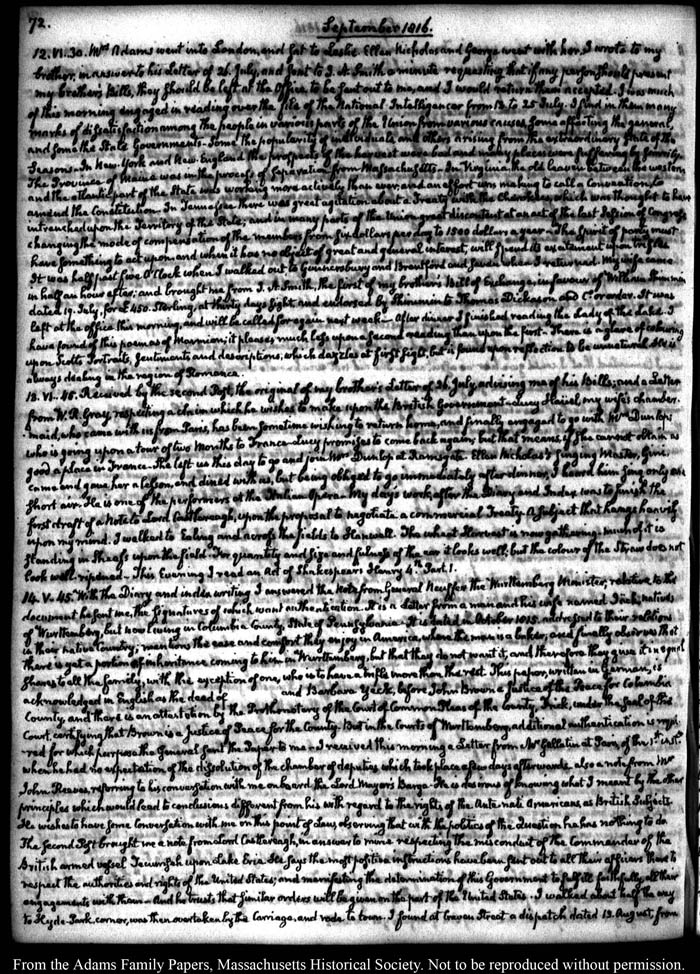 72.
September 1816.
12. VI.30. Mrs. Adams went into London, and sat to Leslie. Ellen Nicholas and George went with her. I wrote to my
brother, in answer to his Letter of 26. July, and sent to J. A. Smith a minute requesting that if any person should present
my brother's Bills, they should be left at the Office, to be sent out to me, and I would return them accepted. I was much
of this morning engaged in reading over the file of the National Intelligencer from 13 to 25 July. I find in them many
marks of dissatisfaction among the people in various parts of the Union from various causes. Some affecting the general,
and some the State Governments. Some the popularity of individuals and others arising from the extraordinary state of the
Seasons. In New York and New-England the prospects of the harvest were bad and in some places were suffering by
The Province of Maine was in the process of Separation from Massachusetts. In Virginia the old leaven between the western
and the atlantic part of the State was working more actively than ever and an effort was making to call a Convention, to
amend the Constitution. In Tennessee there was great agitation about a Treaty with the Cherokees, which was thought to have
intrenched upon the Territory of the State; and in many parts of the Union great discontent at an act of the last Session of Congress
changing the mode of compensation of the members from six dollars per day to 1500 dollars a year. The Spirit of party must
have something to act upon and when it has no object of great and general interest, will spend its excitement upon trifles.
It was half past five O'Clock when I walked out to Gunnersbury and Brentford and just when I returned. My wife came
in half an hour after; and brought me from J. A. Smith, the first of my brother's Bills of Exchange, in favour of William Shimmin
dated 19. July, for £450. Sterling, at thirty days sight, and endorsed by Shimmin to Thomas Dickason and Co. or order. It was
left at the office this morning, and will be called for again next week. After dinner I finished reading the Lady of the Lake. I
have found of this poem as of Marmion; it pleases much less upon a second reading than upon the first. There is a glare of colouring
upon Scotts Portraits, Sentiments and descriptions, which dazzles at first sight, but is found upon reflection to be unnatural. He is
always dealing in the region of Romance.
13. VI.45. Received by the second Post, the original of my brother's Letter of 26 July, advising me of his Bills; and a Letter
from W. R. Gray, respecting a claim which he wishes to make upon the British Government. Lucy my wife's chamber-
maid, who came with us from Paris, has been sometime wishing to return home, and finally engaged to go with Mrs. Dunlop
who is going upon a tour of two Months to France. Lucy promises to come back again; but that means, if she cannot obtain as
good a place in France. She left us this day to go and join Mrs. Dunlop at Ramsgate. Ellen Nicholas's singing Master,
came and gave her a lesson, and dined with us, but being obliged to go immediately after dinner, I heard him sing only one
short air. He is one of the performers at the Italian Opera. My day's work, after the Diary and Index was to finish the
first draft of a Note to Lord Castlereagh, upon the proposal to negotiate a commercial Treaty. A subject that hangs heavily
upon my mind. I walked to Ealing and across the fields to Hanwell. The wheat Harvest is now gathering much of it is
standing in Sheafs upon the field. For quantity and size and fulness of the ear it looks well; but the colour of the Straw does not
look well-ripened. This Evening I read an Act of Shakespear's Henry 4th. Part. 1.
14. V.45. With the Diary and index writing I answered the Note from General Neuffer the Wurttemberg Minister, relative to the
document he sent me, the signatures of which want authentication. It is a Letter from a man and his wife named natives
of Wurttemberg, but now living in Columbia County, State of Pennsylvania. It is dated in October 1815. addressed to their relations
in their native Country; mentions the ease and comfort they enjoy in America, where the man is a baker, and finally observes that
there is yet a portion of inheritance coming to him in Wurttemberg, but that they do not want it, and therefore they give it in equal
shares to all the family, with the exception of one, who is to have a trifle more than the rest. This paper, written in German, is
acknowledged in English as the deed of and Barbara Yeck, before John Brown a Justice of the Peace for Columbia
County, and there is an attestation by the Prothonotary of the Court of Common Pleas of the County, under the Seal of this
Court, certifying that Brown is a Justice of Peace for the County. But in the Courts of Wurttemberg additional authentication is requi-
red for which purpose the General sent the Paper to me. I received this morning a Letter from Mr. Gallatin at Paris, of the
when he had no expectation of the dissolution of the chamber of deputies which took place a few days afterwards. also a note from Mr.
John Reeves, referring to his conversation with me on board the Lord Mayor's Barge. He is desirous of knowing what I meant by the other
principles which would lead to conclusions different from his with regard to the rights of the Ante-nati Americans, as British Subjects.
He wishes to have some Conversation with me on this point of Law, observing that with the politics of the Question he has nothing to do.
The Second Post brought me a note from Lord Castlereagh, in answer to mine respecting the misconduct of the Commander of the
British armed vessel Tecumseh upon Lake Erie. He says the most positive instructions have been sent out to all their officers there to
respect the authorities and rights of the United States; and manifesting the determination of this Government to fulfil faithfully all their
engagements with them. And he trusts that similar orders will be given on the part of the United States. I walked about half the way
to Hyde Park-corner, was then overtaken by the Carriage, and rode to town. I found at Craven Street a dispatch dated 13. August, from
From the Adams Family Papers, Massachusetts Historical Society. Not to be reproduced without permission.